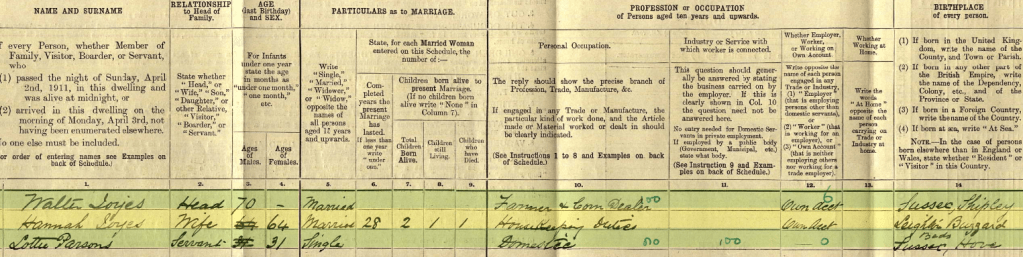 NAME AND SURNAME
RELATIONSHIP
to Head of
Family.
AGE
(last Birthday)
and SEX.
PARTICULARS as to MARRIAGE.
PROFESSION or OCCUPATION
of Persons aged ten years and upwards.
BIRTHPLACE
of every person.
f every Person, whether Member of
Family, Visitor, Boarder, or Servant,
who
(1) passed the night of Sunday, April
2nd, 1911, in this dwelling and
was alive at midnight, or
(2) arrived in this dwelling on the
morning of Monday, April 3rd, not
having been enumerated elsewhere.
No one else must be included.
For order of entering names see Examples on
back of Schedule.
State whether
"Head," or
"Wife," "Son,"
"Daughter," or
other Relative,
"Visitor,"
"Boarder," or
"Servant."
For Infants
under one year
state the age
in months as
"under one month,"
"one month,"
etc.
Ages
of
Males.
Ages
of
Females.
Write
"Single,"
"Married,"
"Widower,"
or "Widow,"
opposite the
names of
all persons
aged 15 years
and upwards.
State, for each Married Woman
entered on this Schedule, the
number of:—
Com-
pleted
years the
present
Marriage
has
lasted.
If less than
one year
write
"under
one."
Children born alive to
present Marriage.
(If no children born
alive write "None" in
Column 7).
Total
Children
Born
Alive.
Children
still
Living.
Children
who
have
Died.
Personal Occupation.
The reply should show the precise branch of
Profession, Trade, Manufacture, &c.
If engaged in any Trade or Manufacture, the
particular kind of work done, and the Article
made or Material worked or dealt in should
be clearly indicated.
(See Instructions 1 to 8 and Examples on back
of Schedule.)
Industry or Service
with which worker is connected.
This question should gener-
ally be answered by stating
the business carried on by
the employer. If this is
clearly shown in Col. 10
the question need not be
answered here.
No entry needed for Domestic Ser-
vants in private employment.
If employed by a public body
(Government, Municipal, etc.)
state what body.
(See Instruction 9 and Exam-
ples on back of Schedule.)
Whether Employer,
Worker,
or Working on
Own Account.
Write opposite the
name of each person
engaged in any
Trade or Industry,
(1) "Employer"
(that is employing
persons other than
domestic servants),
or
(2) "Worker" (that
is working for an
employer), or
(3) "Own Account"
(that is neither
employing others
nor working for a
trade employer).
Whether
Working at
Home.
Write the
words
"At Home"
opposite the
name of each
person
carrying on
Trade or
Industry
at home.
(1) If born in the United King-
dom, write the name of the
County, and Town or Parish.
(2) If born in any other part of
the British Empire, write
the name of the Dependency,
Colony, etc., and of the
Province or State.
(3) If born in a Foreign Country,
write the name of the Country.
(4) If born at sea, write "At Sea."
NOTE.—In the case of persons
born elsewhere than in England or
Wales, state whether "Resident" or
"Visitor" in this Country.
1. 2. 3. 4. 5. 6. 7. 8. 9. 10. 11. 12. 13. 14
Walter Head 70 - Married Farmer & Corn Dealer Own acct Sussex Shipley
Hannah Wife 64 Married 28 2 1 1 Housekeeping Duties Own acct Leighton Buzzard
Beds
Lottie Parsons Servant 31 Single Domestic 50 100 0 Sussex, Hove